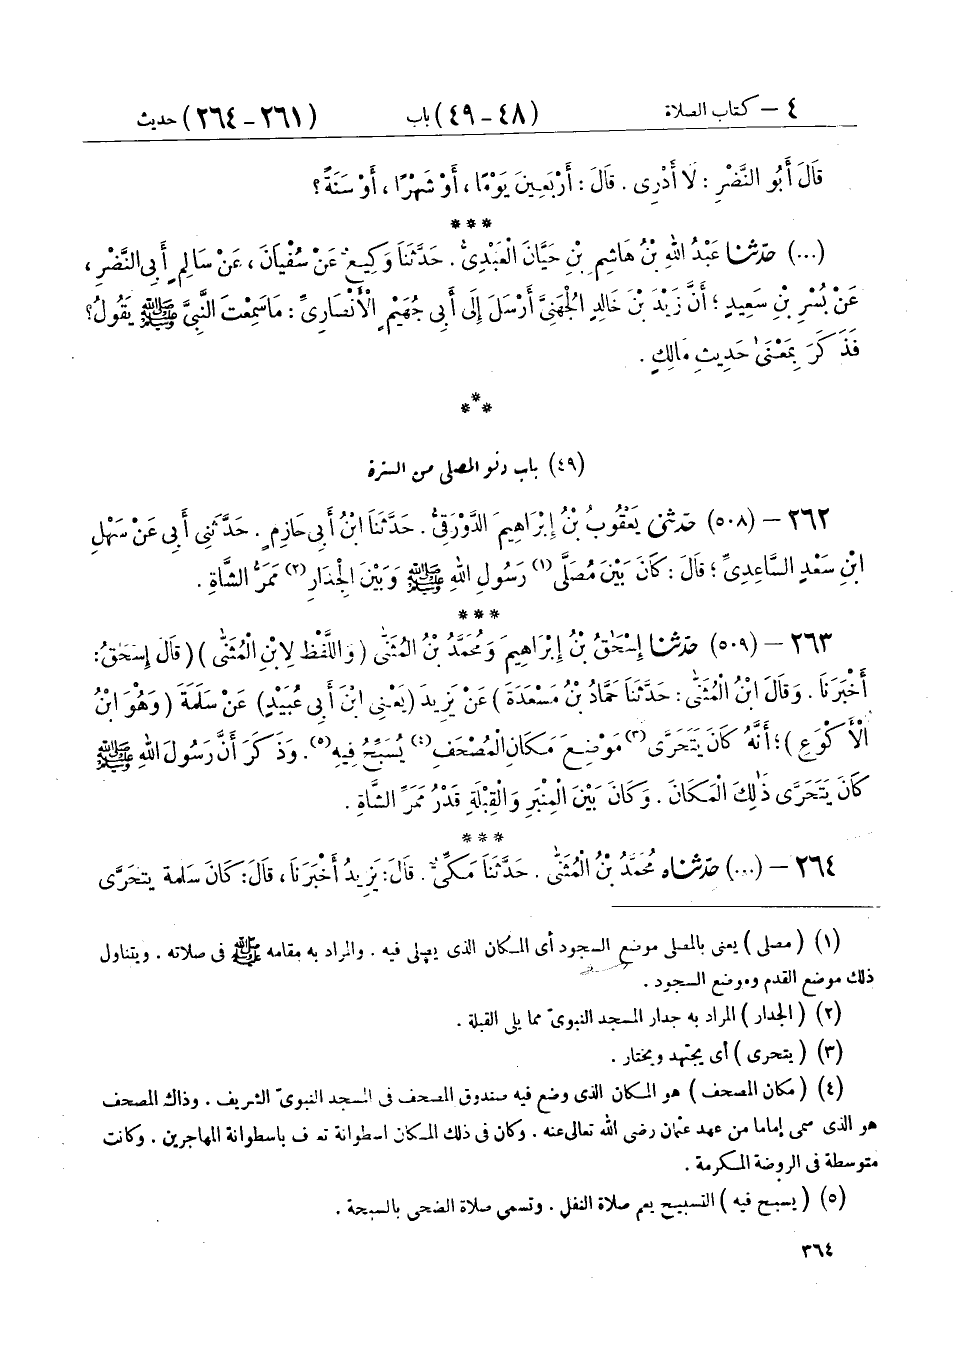 ٤ – كتاب الصلاة (٤٨ – ٤٩) باب (٢٦١ – ٢٦٤) حديث
قَالَ أَبُو النَّضْرِ : لَا أَدْرِى . قَالَ : أَرْبَعِينَ يَوْمًا ، أَوْ شَهْرًا ، أَوْ سَنَةً ؟
***
(...) حَدَّثَنَا عَبْدُ اللهِ بْنُ هَاشِمِ بْنِ حَيَّانَ الْعَبْدِىُّ . حَدَّثَنَا وَكِيعٌ عَنْ سُفْيَانَ ، عَنْ سَالِمٍ أَبِى النَّضْرِ ،
عَنْ بُسْرِ بْنِ سَعِيدٍ ؛ أَنَّ زَيْدَ بْنَ خَالِدٍ الْجُهَنِىَّ أَرْسَلَ إِلَى أَبِى جُهَيْمٍ الْأَنْصَارِىِّ : مَا سَمِعْتَ النَّبِىَّ ﷺ يَقُولُ ؟
فَذَكَرَ بِمَعْنَىٰ حَدِيثِ مَالِكٍ .
***
(٤٩) باب دنو المصلى من السترة
٢٦٢ – (٥٠٨) حَدَّثَنِى يَعْقُوبُ بْنُ إِبْرَاهِيمَ الدَّوْرَقِىُّ . حَدَّثَنَا ابْنُ أَبِى حَازِمٍ . حَدَّثَنِى أَبِى عَنْ سَهْلِ
ابْنِ سَعْدٍ السَّاعِدِىِّ ؛ قَالَ : كَانَ بَيْنَ مُصَلَّى (١) رَسُولِ اللهِ ﷺ وَبَيْنَ الْجِدَارِ (٢) مَمَرُّ الشَّاةِ .
***
٢٦٣ – (٥٠٩) حَدَّثَنَا إِسْحَٰقُ بْنُ إِبْرَاهِيمَ وَمُحَمَّدُ بْنُ الْمُثَنَّىٰ ( وَاللَّفْظُ لِابْنِ الْمُثَنَّىٰ ) ( قَالَ إِسْحَٰقُ :
أَخْبَرَنَا . وَقَالَ ابْنُ الْمُثَنَّىٰ : حَدَّثَنَا حَمَّادُ بْنُ مَسْعَدَةَ ) عَنْ يَزِيدَ (يَعْنِى ابْنَ أَبِى عُبَيْدٍ) عَنْ سَلَمَةَ ( وَهُوَ ابْنُ
الْأَكْوَعِ ) ؛ أَنَّهُ كَانَ يَتَحَرَّى (٣) مَوْضِعَ مَكَانِ الْمُصْحَفِ (٤) يُسَبِّحُ فِيهِ (٥) . وَذَكَرَ أَنَّ رَسُولَ اللهِ ﷺ
كَانَ يَتَحَرَّى ذَٰلِكَ الْمَكَانَ . وَكَانَ بَيْنَ الْمِنْبَرِ وَالْقِبْلَةِ قَدْرُ مَمَرِّ الشَّاةِ .
***
٢٦٤ – (...) حَدَّثَنَاه مُحَمَّدُ بْنُ الْمُثَنَّىٰ . حَدَّثَنَا مَكِّىٌّ . قَالَ : يَزِيدُ أَخْبَرَنَا ، قَالَ : كَانَ سَلَمة يتحَرَّى
(١) ( مصلى ) يعنى بالمصلى موضع السجود أى المكان الذى يصلى فيه . والمراد به مقامه ﷺ فى صلاته . ويتناول
ذلك موضع القدم وموضع السجود .
(٢) ( الجدار ) المراد به جدار المسجد النبوىّ مما يلى القبلة .
(٣) ( يتحرى ) أى يجتهد ويختار .
(٤) ( مكان المصحف ) هو المكان الذى وضع فيه صندوق المصحف فى المسجد النبوىّ الشريف . وذاك المصحف
هو الذى سمى إماما من عهد عثمان رضى الله تعالى عنه . وكان فى ذلك المكان اسطوانة تعرف باسطوانة المهاجرين . وكانت
متوسطة فى الروضة المكرمة .
(٥) ( يسبح فيه ) التسبيح يعم صلاة النفل . وتسمى صلاة الضحى بالسبحة .
٣٦٤